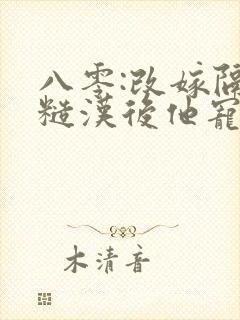 八零:改嫁隔
糙漢後他寵
木清音